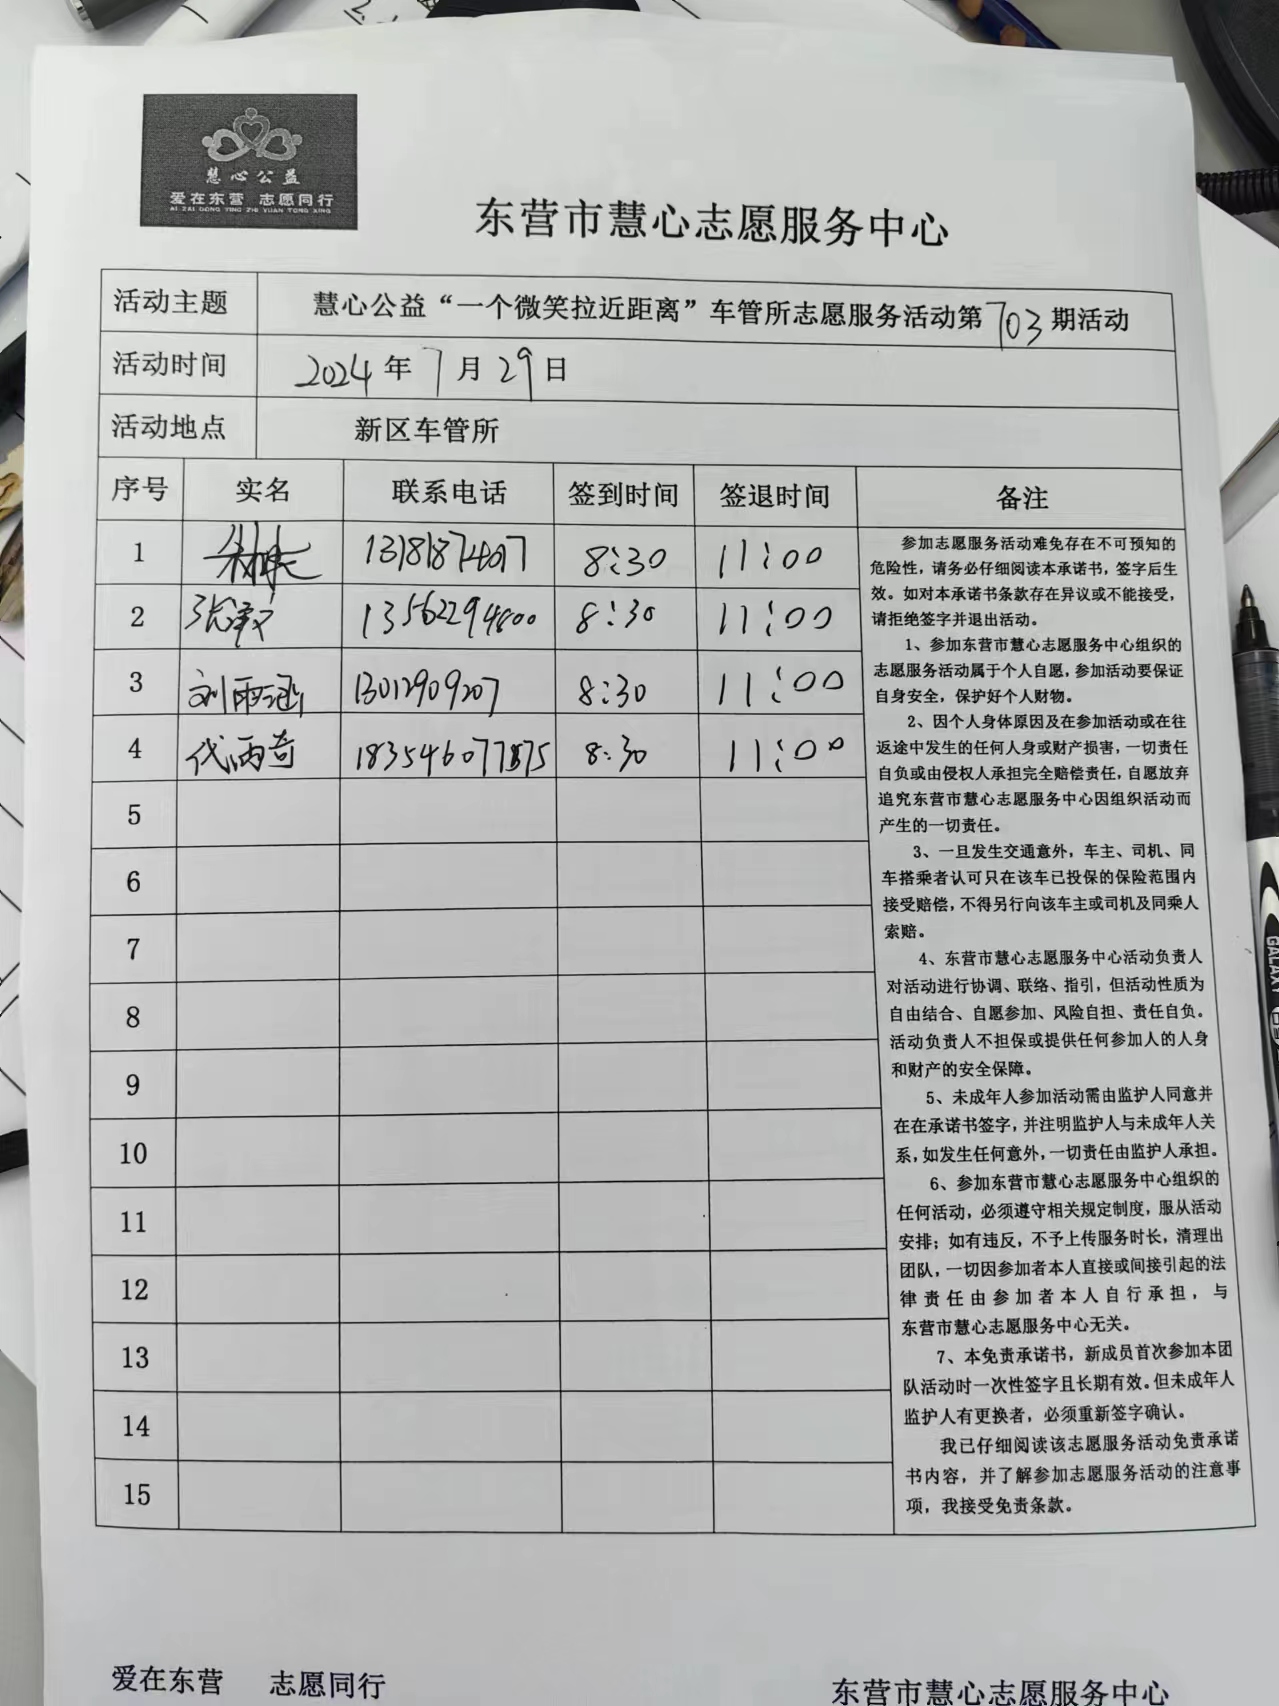 慧心公益
爱在东营 志愿同行
AI ZAI DONG YING ZHI YUAN TONG XING
东营市慧心志愿服务中心
活动主题 慧心公益“一个微笑拉近距离”车管所志愿服务活动第703期活动
活动时间 2024年7月29日
活动地点 新区车管所
序号 实名 联系电话 签到时间 签退时间 备注
1 8:30 11:00
2 13562294800 8:30 11:00
3 刘雨涵 13012909207 8:30 11:00
4 代雨奇 8:30 11:00
5
6
7
8
9
10
11
12
13
14
15
参加志愿服务活动难免存在不可预知的
危险性，请务必仔细阅读本承诺书，签字后生
效。如对本承诺书条款存在异议或不能接受，
请拒绝签字并退出活动。
1、参加东营市慧心志愿服务中心组织的
志愿服务活动属于个人自愿，参加活动要保证
自身安全，保护好个人财物。
2、因个人身体原因及在参加活动或在往
返途中发生的任何人身或财产损害，一切责任
自负或由侵权人承担完全赔偿责任，自愿放弃
追究东营市慧心志愿服务中心因组织活动而
产生的一切责任。
3、一旦发生交通意外，车主、司机、同
车搭乘者认可只在该车已投保的保险范围内
接受赔偿，不得另行向该车主或司机及同乘人
索赔。
4、东营市慧心志愿服务中心活动负责人
对活动进行协调、联络、指引，但活动性质为
自由结合、自愿参加、风险自担、责任自负。
活动负责人不担保或提供任何参加人的人身
和财产的安全保障。
5、未成年人参加活动需由监护人同意并
在在承诺书签字，并注明监护人与未成年人关
系，如发生任何意外，一切责任由监护人承担。
6、参加东营市慧心志愿服务中心组织的
任何活动，必须遵守相关规定制度，服从活动
安排；如有违反，不予上传服务时长，清理出
团队，一切因参加者本人直接或间接引起的法
律责任由参加者本人自行承担，与
东营市慧心志愿服务中心无关。
7、本免责承诺书，新成员首次参加本团
队活动时一次性签字且长期有效。但未成年人
监护人有更换者，必须重新签字确认。
我已仔细阅读该志愿服务活动免责承诺
书内容，并了解参加志愿服务活动的注意事
项，我接受免责条款。
爱在东营 志愿同行 东营市慧心志愿服务中心
GALAXY